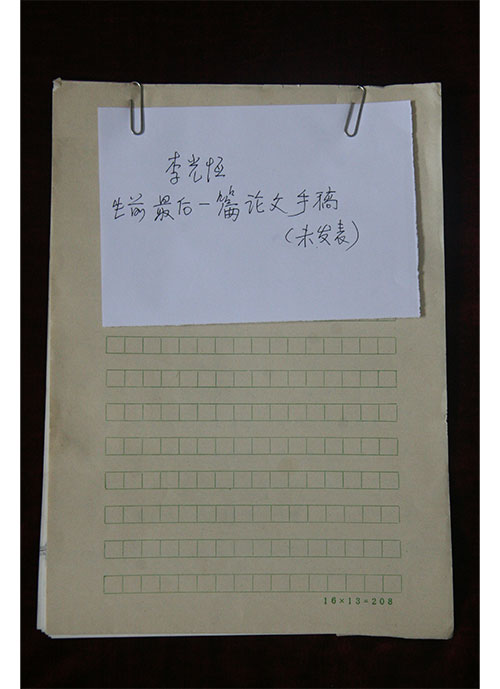 李光恒
生前最后一篇论文手稿
(未发表)
16×13=208